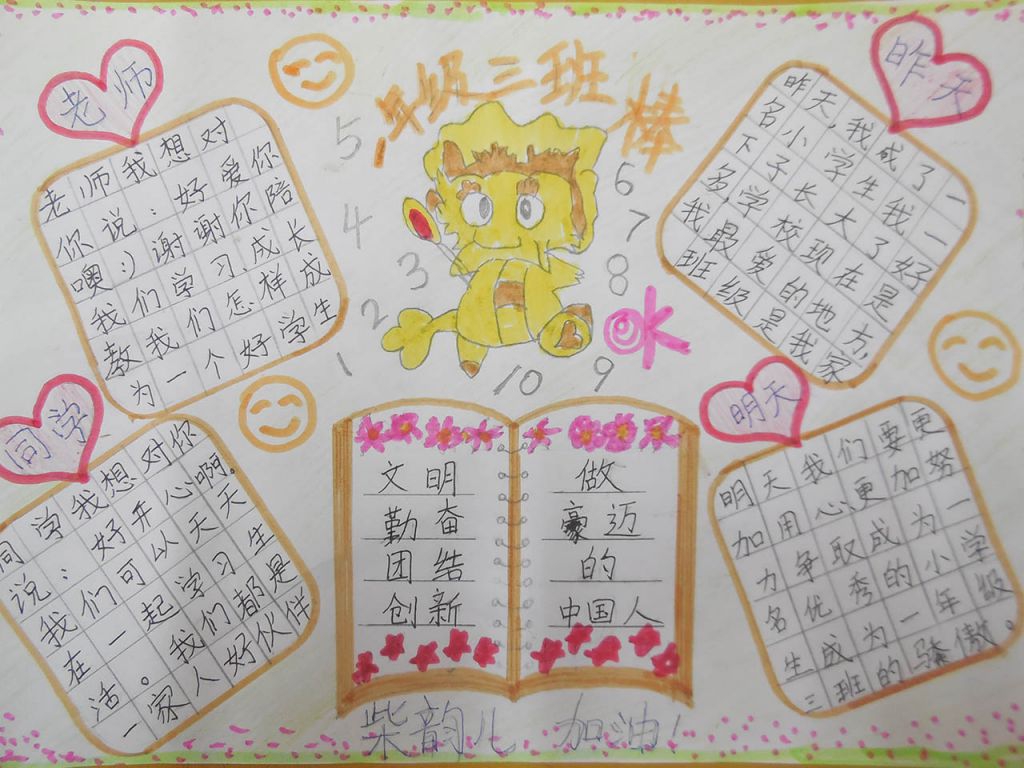 一年级三班棒
老师
老师我想对
你说：好爱你
噢:)谢谢你陪
我们学习、成长
教我们怎样成
为一个好学生
昨天
昨天，我成了一
名小学生我一
下子长大了好
多，学校现在是
我最爱的地方，
班级是我家
5
4
3
2
1
6
7
8
9
10
OK
同学
同学我想对你
说：好开心啊。
我们可以天天
在一起学习生
活。我们都是
一家人好伙伴
明天
明天我们要更
加用心、更加努
力争取成为一
名优秀的小学
生成为一年级
三班的骄傲。
文明
勤奋
团结
创新
做
豪迈
的
中国人
柴韵儿 加油！